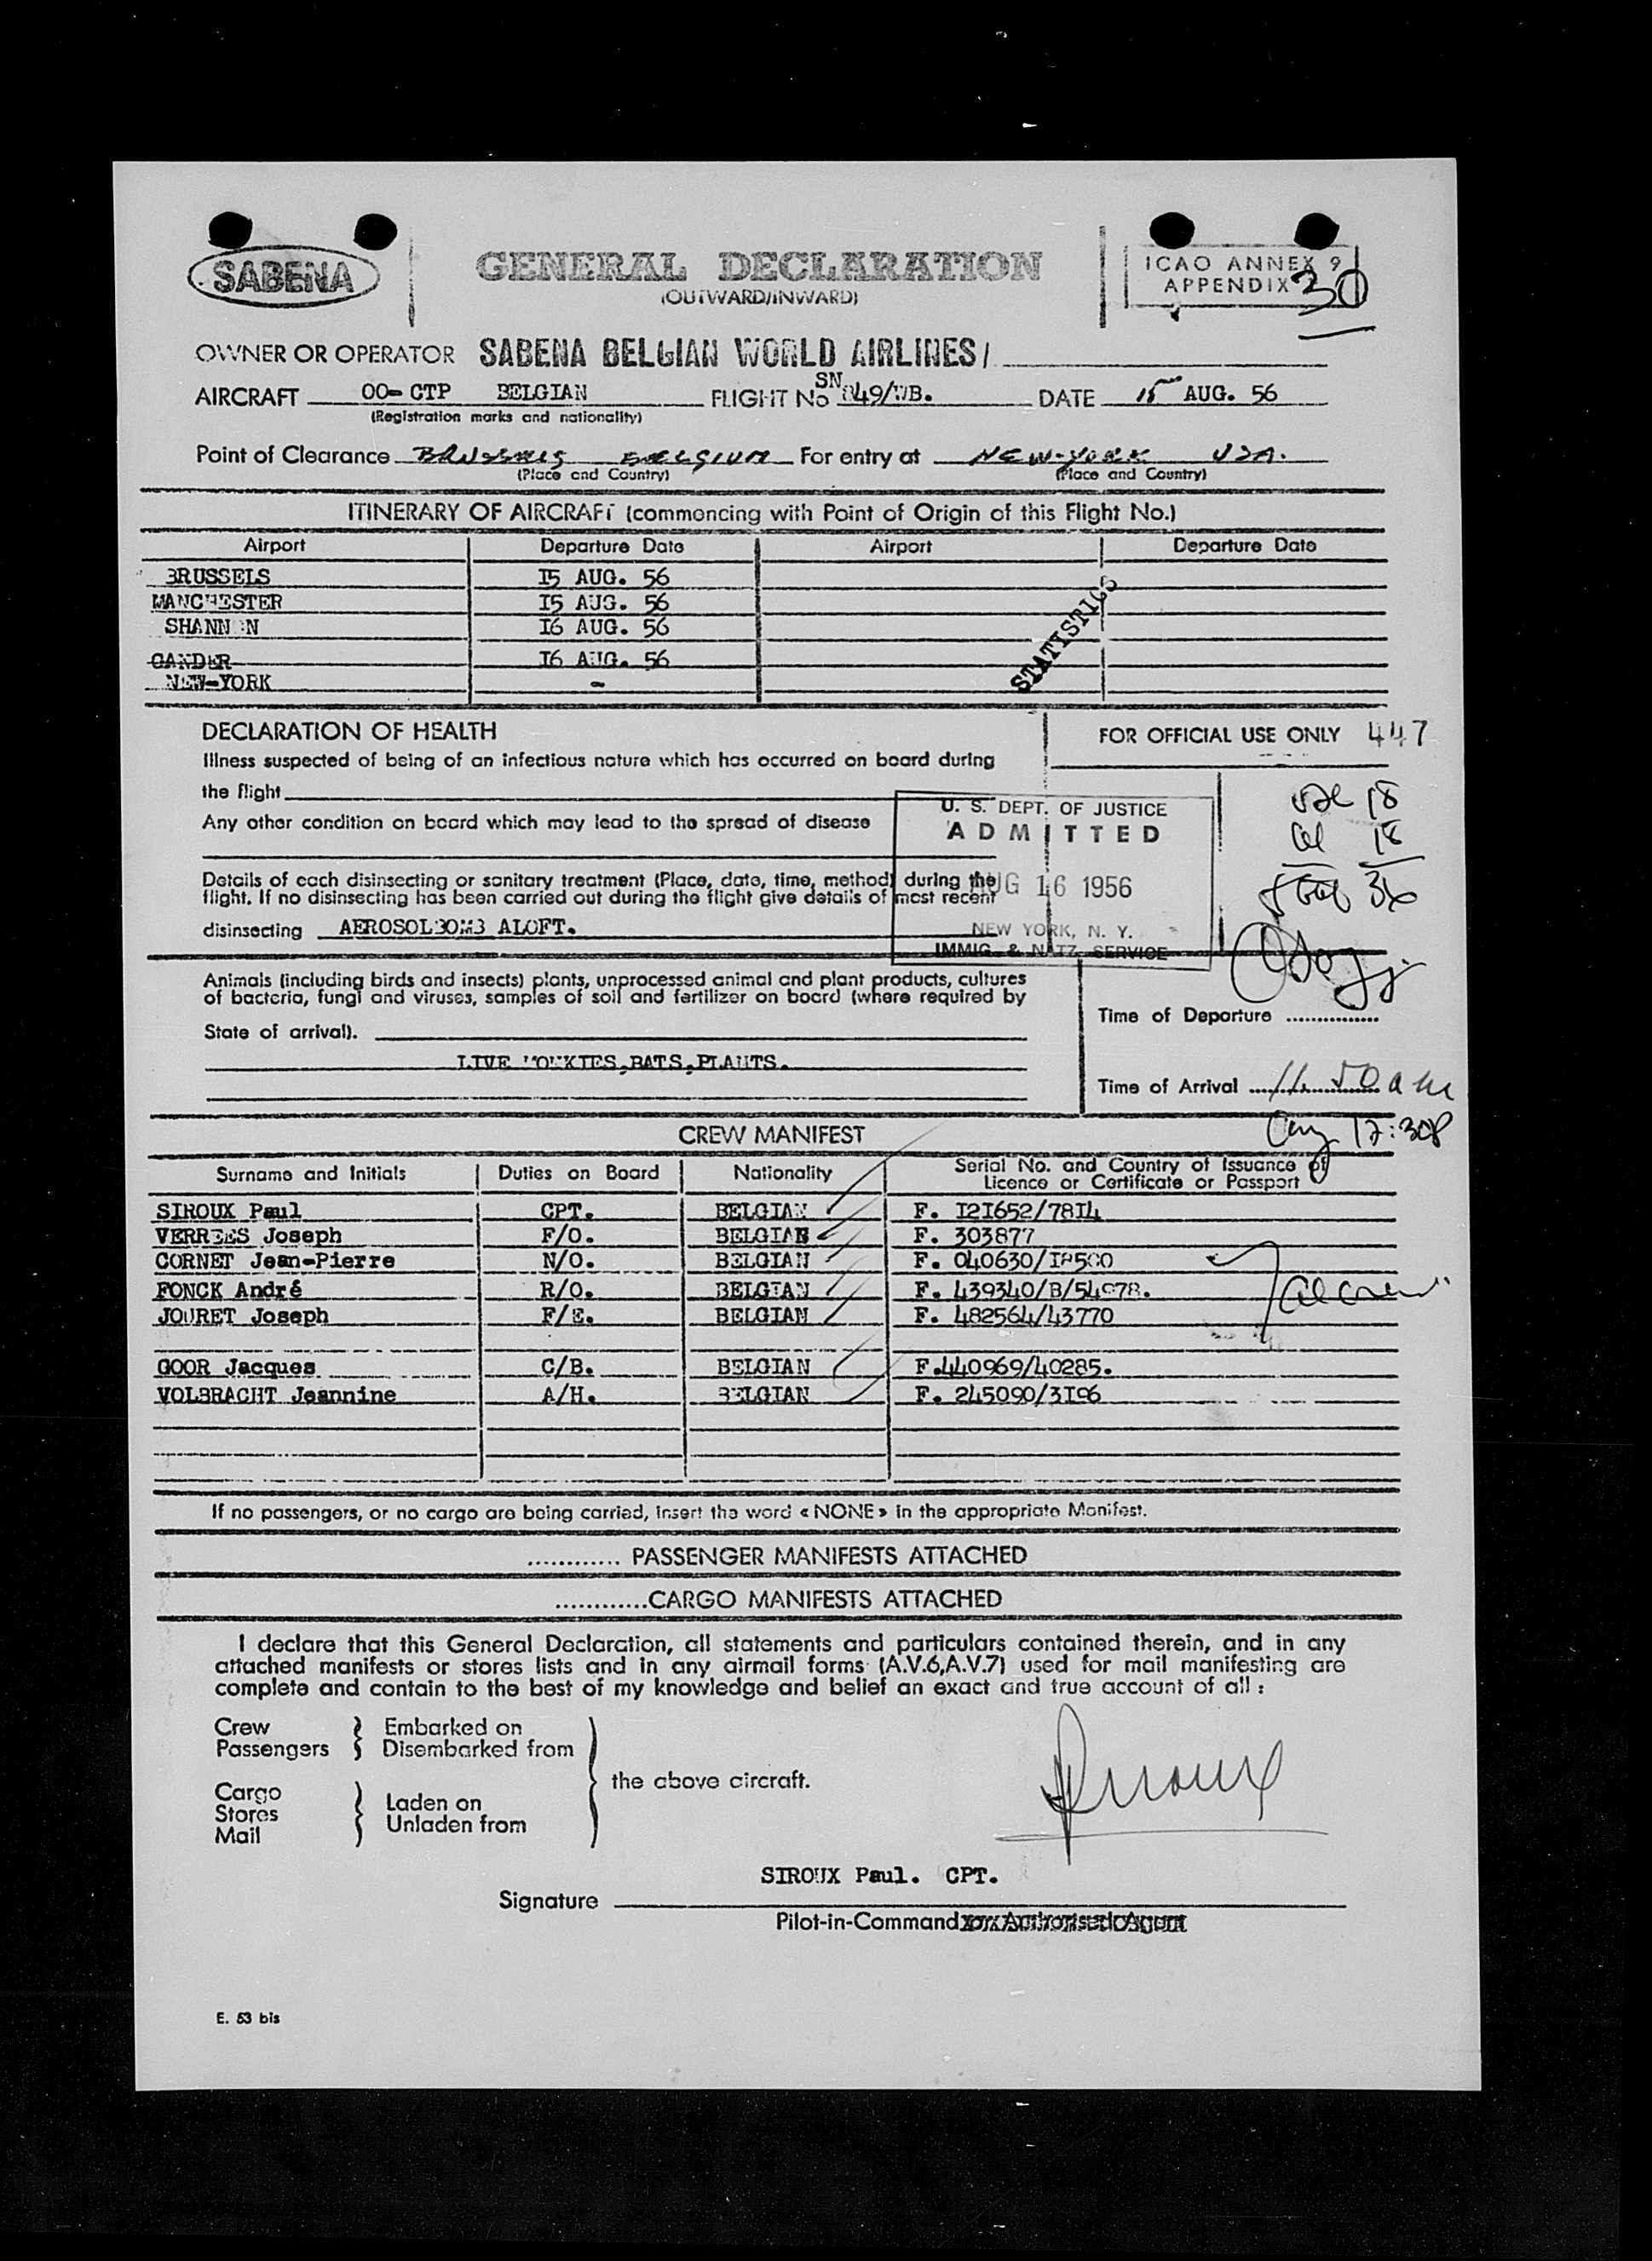 SABENA
GENERAL DECLARATION
(OUTWARD/INWARD)
ICAO ANNEX 9
APPENDIX
30
OWNER OR OPERATOR SABENA BELGIAN WORLD AIRLINES/
AIRCRAFT OO-CTP BELGIAN FLIGHT No SN 549/WB. DATE 15 AUG. 56
(Registration marks and nationality)
Point of Clearance BRUSSELS BELGIUM For entry at NEW-YORK USA.
(Place and Country) (Place and Country)
ITINERARY OF AIRCRAFT (commencing with Point of Origin of this Flight No.)
Airport Departure Date Airport Departure Date
BRUSSELS I5 AUG. 56
MANCHESTER I5 AUG. 56
SHANNON I6 AUG. 56
GANDER I6 AUG. 56
NEW-YORK -
STATISTICS
DECLARATION OF HEALTH
FOR OFFICIAL USE ONLY 447
Illness suspected of being of an infectious nature which has occurred on board during
the flight
Any other condition on board which may lead to the spread of disease
U. S. DEPT. OF JUSTICE
ADMITTED
AUG 16 1956
NEW YORK, N. Y.
IMMIG. & NATZ. SERVICE
18
18
36
Details of each disinsecting or sanitary treatment (Place, date, time, method) during the
flight. If no disinsecting has been carried out during the flight give details of most recent
disinsecting AEROSOLBOMB ALOFT.
Animals (including birds and insects) plants, unprocessed animal and plant products, cultures
of bacteria, fungi and viruses, samples of soil and fertilizer on board (where required by
State of arrival).
LIVE MONKIES,RATS,PLANTS.
Time of Departure ...............
Time of Arrival 11.50 am
12:30P
CREW MANIFEST
Surname and Initials Duties on Board Nationality Serial No. and Country of Issuance of
Licence or Certificate or Passport
SIROUX Paul CPT. BELGIAN F. I2I652/78I4
VERREES Joseph F/O. BELGIAN F. 303877
CORNET Jean-Pierre N/O. BELGIAN F.
FONCK André R/O. BELGIAN F.
JOURET Joseph F/E. BELGIAN F. 482564/43770
GOOR Jacques C/B. BELGIAN F.440969/40285.
VOLBRACHT Jeannine A/H. BELGIAN F. 245090/3I96
If no passengers, or no cargo are being carried, insert the word « NONE » in the appropriate Manifest.
............ PASSENGER MANIFESTS ATTACHED
............CARGO MANIFESTS ATTACHED
I declare that this General Declaration, all statements and particulars contained therein, and in any
attached manifests or stores lists and in any airmail forms (A.V.6,A.V.7) used for mail manifesting are
complete and contain to the best of my knowledge and belief an exact and true account of all :
Crew Embarked on
Passengers Disembarked from
the above aircraft.
Cargo
Stores Laden on
Mail Unladen from
SIROUX Paul. CPT.
Signature
Pilot-in-Command or Authorised Agent
E. 53 bis